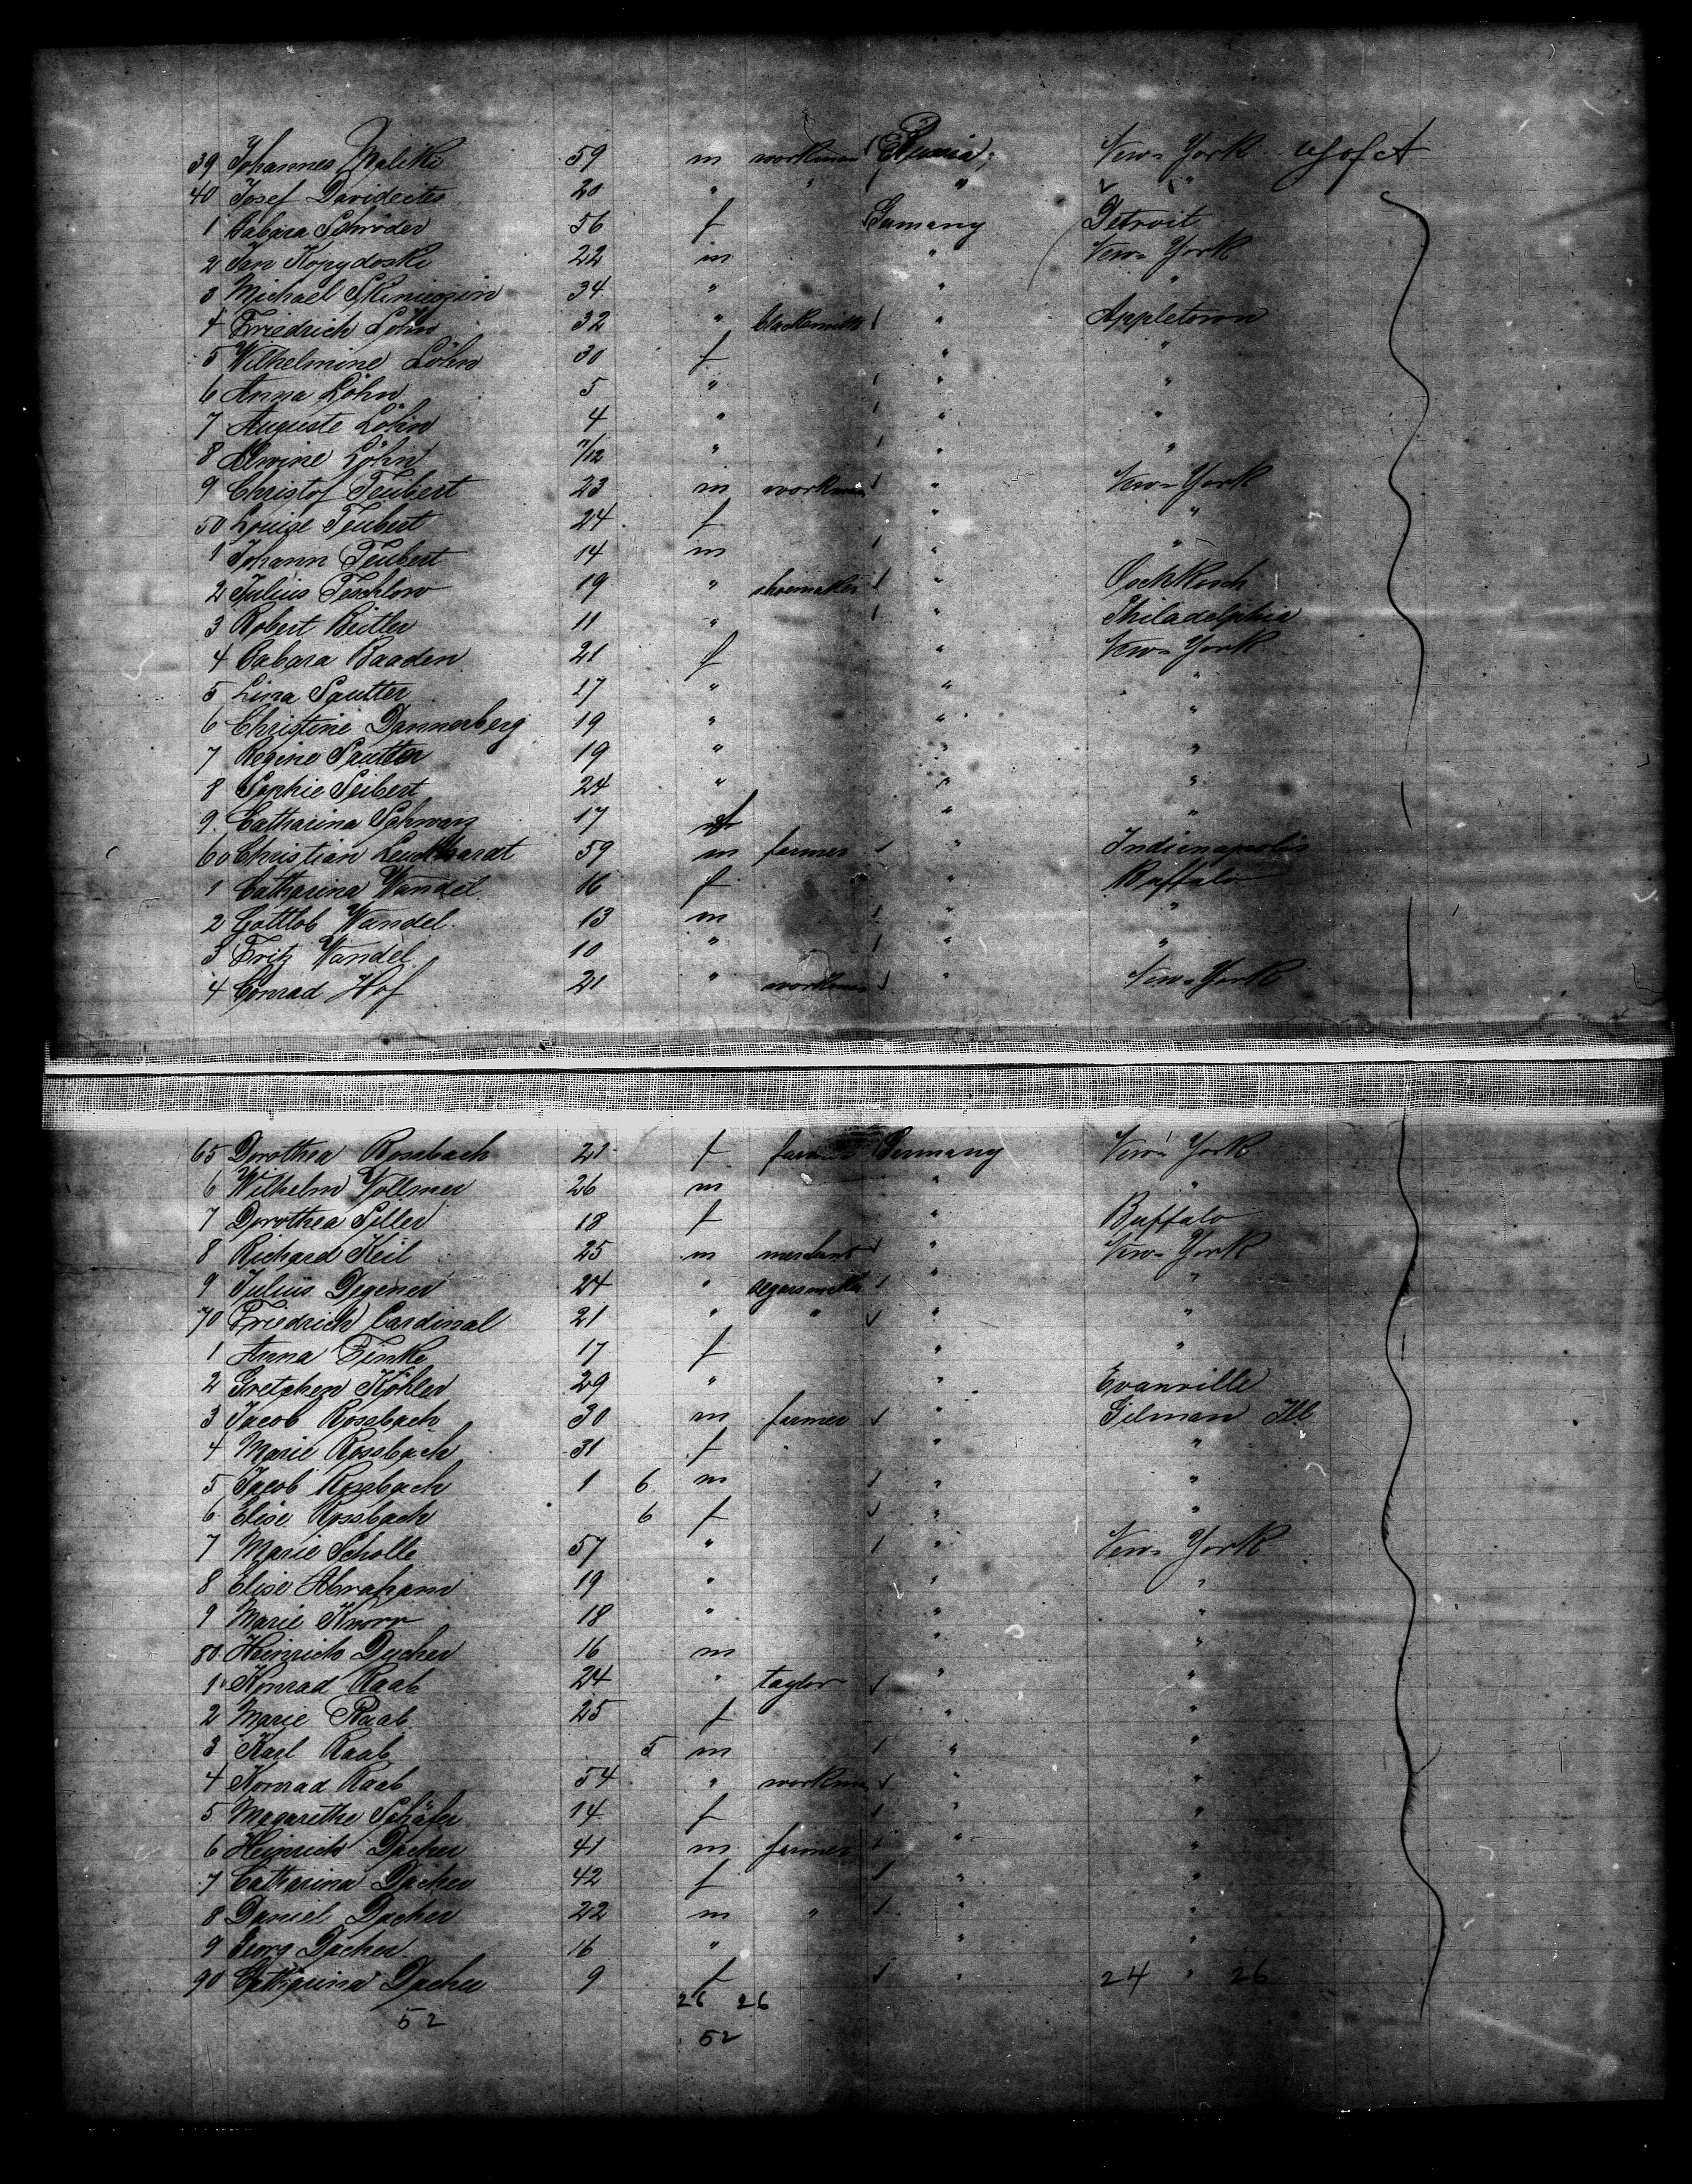 39 Johannes Malike 59 m workman Russia New-York U S of A
40 Josef Davideites 20 " " " " "
1 Babara Schröder 56 f Germany Detroit
2 Jan Kopydoski 22 m " New-York
3 Michael 34 " " "
4 Friedrich Löhn 32 " blacksmith " Appletown
5 Wilhelmine Löhn 30 f " "
6 Anna Löhn 5 " " "
7 Auguste Löhn 4 " " "
8 Alwine Löhn 7/12 " " "
9 Christof Teubert 23 m workman " New-York
50 Louise Teubert 24 f " "
1 Johann Teubert 14 m " "
2 Julius Teschlow 19 " shoemaker " Oschkosch
3 Robert Beutler 11 " " Philadelphia
4 Babara Baaden 21 f " New-York
5 Lina Sautter 17 " " "
6 Christine Dannerberg 19 " " "
7 Regine Sautter 19 " " "
8 Sophie Seibert 24 " " "
9 Catharina Schwarz 17 f " "
60 Christian Leuckhardt 59 m farmer " Indianapolis
1 Catharina Wandel 16 f " Buffalo
2 Gottlob Wandel 13 m " "
3 Fritz Wandel 10 " " "
4 Conrad Hof 21 " workman " New-York
65 Dorothea Rossbach 21 f farmer Germany New-York
6 Wilhelm Vollmer 26 m " "
7 Dorothea Seller 18 f " Buffalo
8 Richard Keil 25 m merchant " New-York
9 Julius Degener 24 " segarsmaker " "
70 Friedrich Cardinal 21 " " " "
1 Anna Finke 17 f " "
2 Gretchen Köhler 29 " " Evanville
3 Jacob Rossbach 30 m farmer " Gilman Ill
4 Marie Rossbach 31 f " "
5 Jacob Rossbach 1 6 m " "
6 Elise Rossbach 6 f " "
7 Marie Scholle 57 " " New-York
8 Elise Abraham 19 " " "
9 Marie Knorr 18 " " "
80 Heinrich Dächer 16 m " "
1 Konrad Raab 24 " taylor " "
2 Marie Raab 25 f " "
3 Karl Raab 5 m " "
4 Konrad Raab 54 " workman " "
5 Magarethe Schäfer 14 f " "
6 Heinrich Dächer 41 m farmer " "
7 Catharina Dächer 42 f " "
8 Daniel Dächer 22 m " " "
9 Georg Dächer 16 " " "
90 Catharina Dächer 9 f " 24 " 26
26 26
52 52